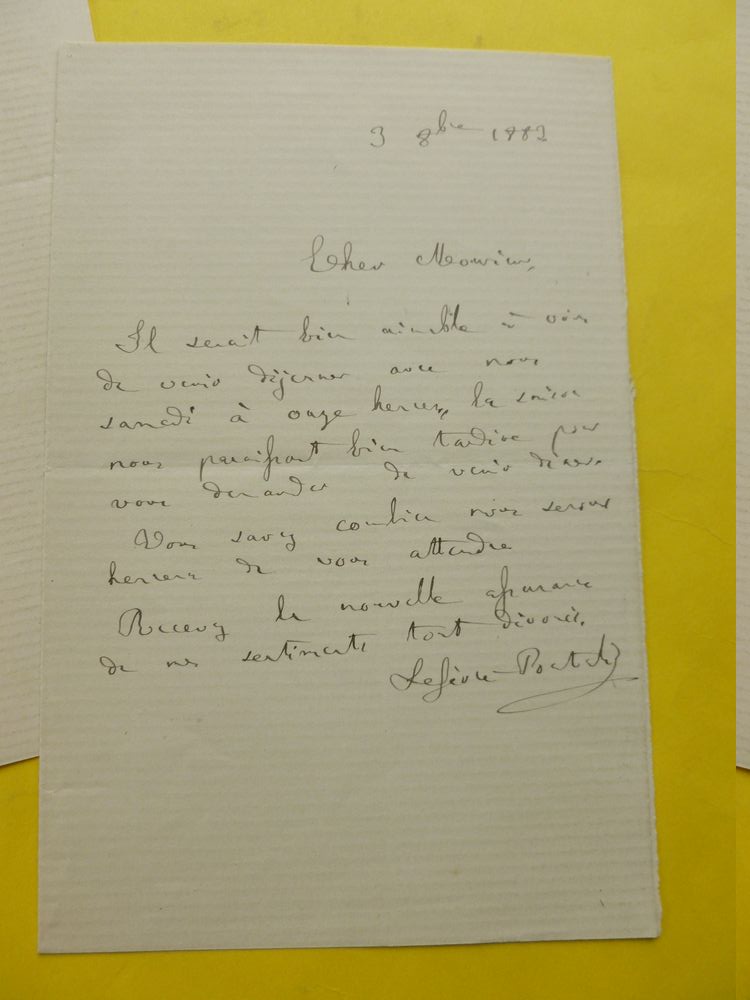 3 8bre 1882
Cher Monsieur,
Il serait bien aimable à vous
de venir déjeuner avec nous
samedi à onze heures, la soirée
nous paraissant bien tardive pour
vous demander de venir dîner.
Vous savez combien nous serons
heureux de vous attendre
Recevez la nouvelle assurance
de mes sentiments tout dévoués.
Lefèvre-Pontalis